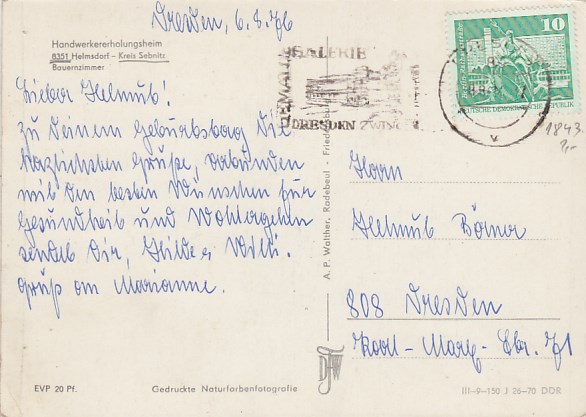 Dresden, 6.8.76
Handwerkererholungsheim
8351 Helmsdorf - Kreis Sebnitz
Bauernzimmer
Lieber Helmut!
Zu Deinem Geburtstag die
herzlichsten Grüße, verbunden
mit den besten Wünschen für
Gesundheit und Wohlergehen
sendet Dir, Hilde u Willi.
Gruß an Marianne.
EVP 20 Pf.
Gedruckte Naturfarbenfotografie
A. P. Walther, Radebeul - Fried
GEMÄLDEGALERIE
DRESDEN ZWINGER
10
DEUTSCHE DEMOKRATISCHE REPUBLIK
1843
2,-
Herrn
Helmut Börner
808 Dresden
Karl-Marx-Str. 71
III-9-150 J 26-70 DDR